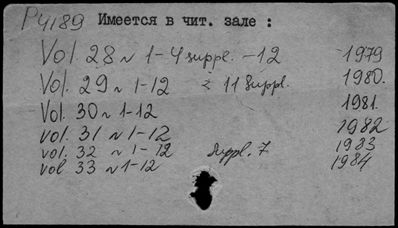 P4189 Имеется в чит. зале :
Vol. 28 N 1-4 suppl. -12 1979
Vol. 29 N 1-12 11 Suppl. 1980.
Vol. 30 N 1-12 1981.
vol. 31 N 1-12 1982
vol. 32 N 1-12 Suppl. 7 1983
vol 33 N 1-12 1984